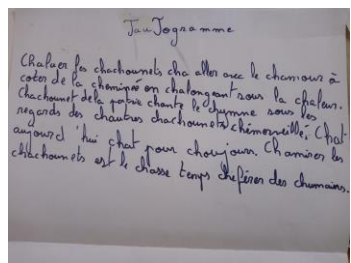 TauTogramme
Chaluer les chachounets cha aller avec le chamour à
coter de la cheminée en chalongeant sous la chaleur.
Chachounet de la patrie chante le chymne sous les
regards des chautres chachounets chémerveillé, Chat
aujourd'hui chat pour choujours. Chamiser les
chachounets est le chasse temps chéférer des chumains.